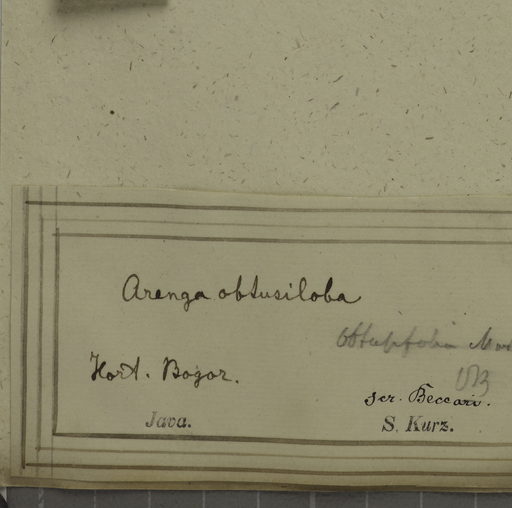 Arenga obtusiloba
obtusifolia Mart
Hort. Bogor.
OB
scr. Beccari.
Java.
S. Kurz.